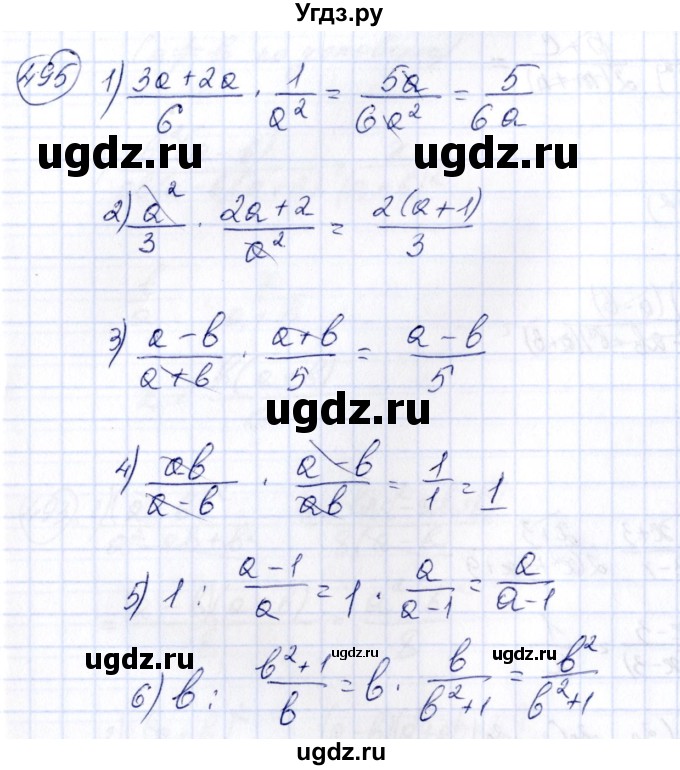 Угдз.ру
495 1) (3a+2a)/6 · 1/a² = 5a/6a² = 5/6a
ugdz.ru ugdz.ru
2) a²/3 · (2a+2)/a² = 2(a+1)/3
3) (a-b)/(a+b) · (a+b)/5 = (a-b)/5
ugdz.ru
4) ab/(a-b) · (a-b)/ab = 1/1 = 1
5) 1 : (a-1)/a = 1 · a/(a-1) = a/(a-1)
ugdz.ru ugdz.ru ugdz.ru
6) b : (b²+1)/b = b · b/(b²+1) = b²/(b²+1)
ugdz.ru